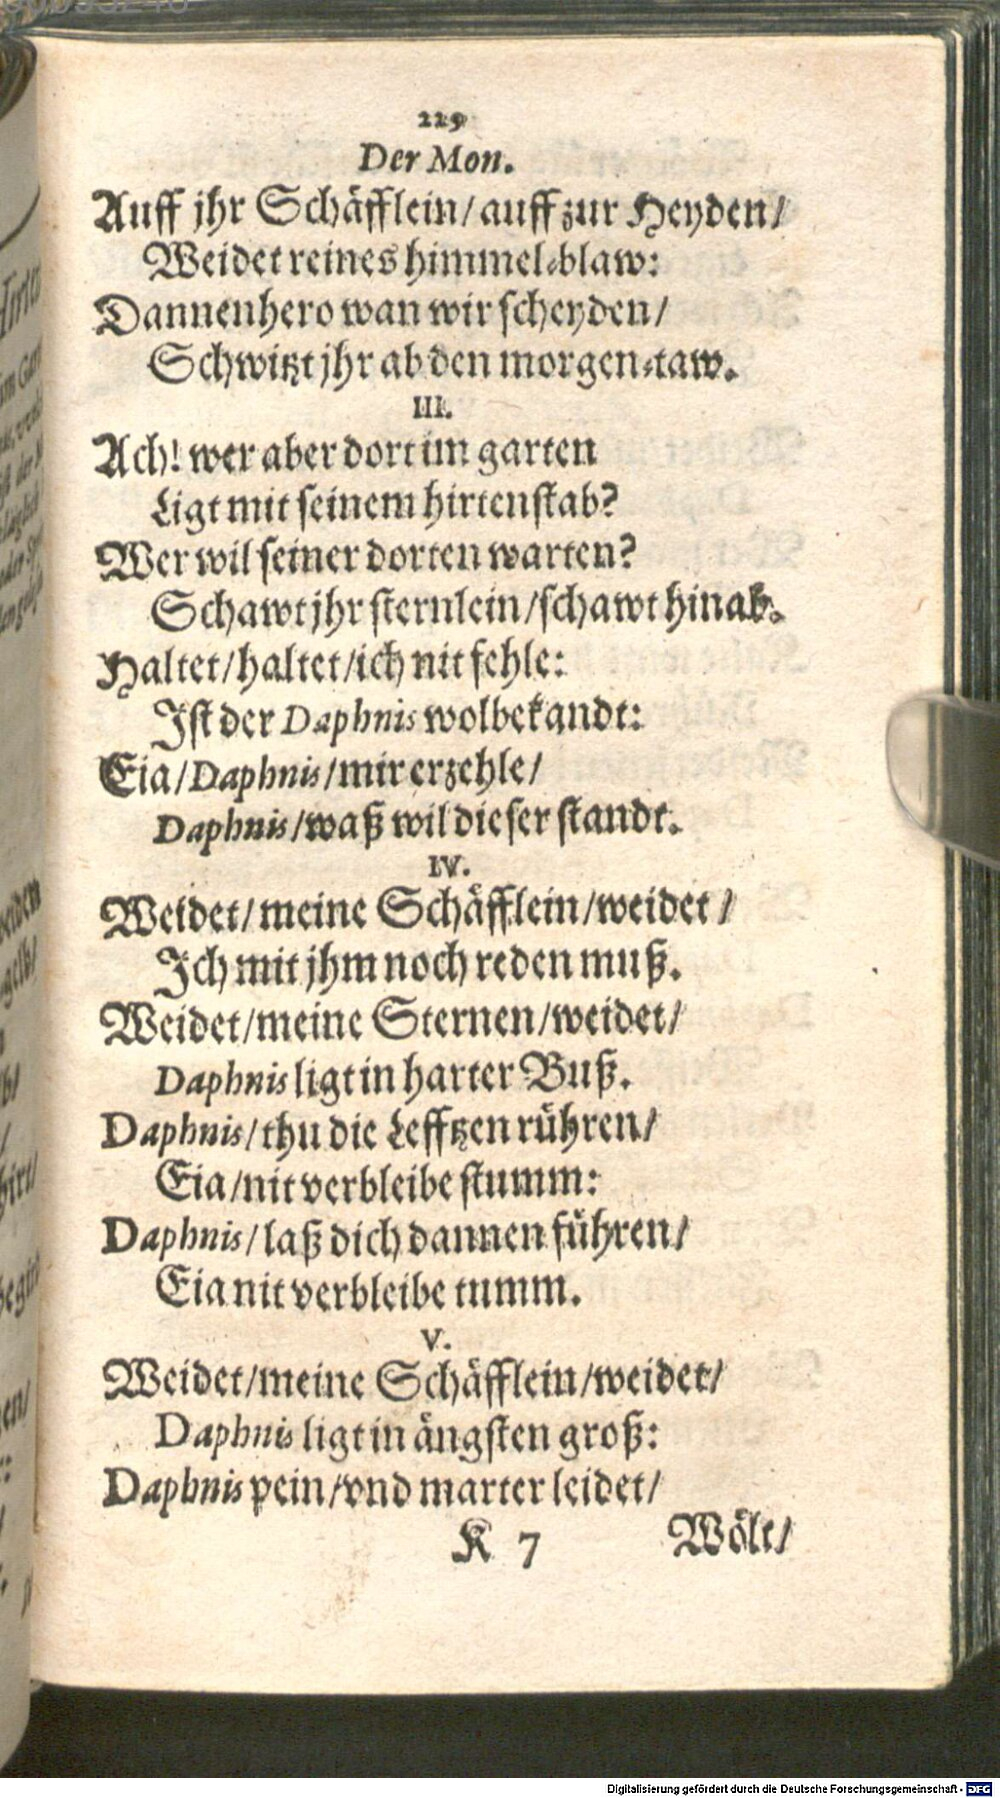 229
Der Mon.
Auff jhr Schäfflein/ auff zur Heyden/
Weidet reines himmel-blaw:
Dannenhero wan wir scheyden/
Schwitzt jhr ab den morgen-taw.
III.
Ach! wer aber dort im garten
Ligt mit seinem hirtenstab?
Wer wil seiner dorten warten?
Schawt jhr sternlein/schawt hinab.
Haltet/haltet/ich nit fehle:
Ist der Daphnis wolbekandt:
Eia/Daphnis/mir erzehle/
Daphnis/waß wil dieser standt.
IV.
Weidet/meine Schäfflein/weidet/
Ich mit jhm noch reden muß.
Weidet/meine Sternen/weidet/
Daphnis ligt in harter Buß.
Daphnis/thu die Lefftzen rühren/
Eia/nit verbleibe stumm:
Daphnis/laß dich dannen führen/
Eia nit verbleibe tumm.
V.
Weidet/meine Schäfflein/weidet/
Daphnis ligt in ängsten groß:
Daphnis pein/vnd marter leidet/
K 7 Wölt/
Digitalisierung gefördert durch die Deutsche Forschungsgemeinschaft - DFG